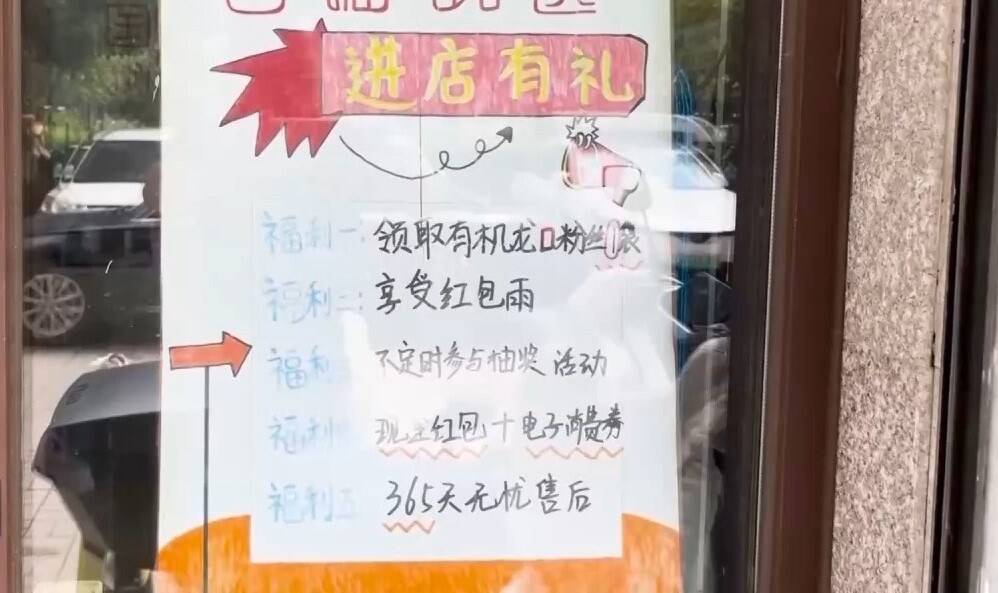 进店有礼
福利一:领取有机龙口粉丝1袋
福利二:享受红包雨
福利三 不定时参与抽奖活动
福利四 现金红包+电子消费券
福利五 365天无忧售后